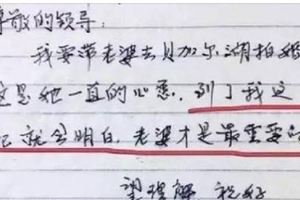 尊敬的领导：
我要带老婆去贝加尔湖拍婚
这是她一直的心愿，到了我这
就会明白，老婆才是最重要的
望理解 祝好